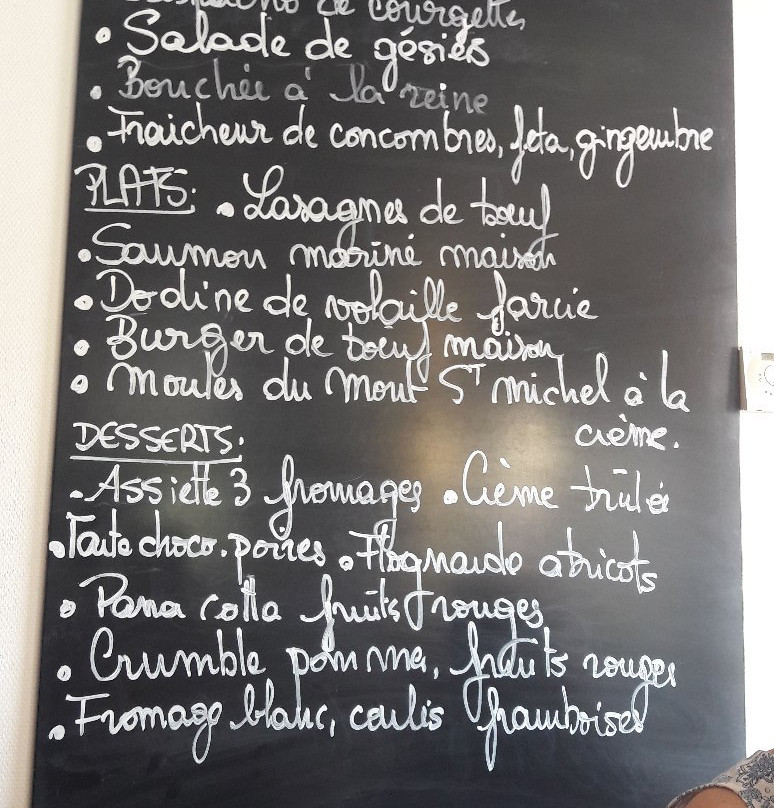 de courgettes
• Salade de gésiers
• Bouchée à la reine
• Fraicheur de concombres, feta, gingembre
PLATS: • Lasagnes de bœuf
• Saumon mariné maison
• Dodine de volaille farcie
• Burger de bœuf maison
• Moules du Mont St Michel à la
crème.
DESSERTS:
• Assiette 3 fromages • Crème brûlée
• Tarte choco. poires • Flognarde abricots
• Pana cotta fruits rouges
• Crumble pomme, fruits rouges
• Fromage blanc, coulis framboises